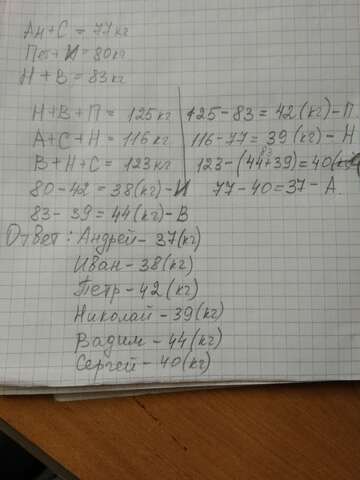 Ан+С = 77кг
Пет+И = 80кг
Н + В = 83кг
Н+В+П = 125кг
125-83 = 42(кг)-П
А+С+Н = 116кг
116-77 = 39(кг)-Н
В+Н+С = 123кг
83
123-(44+39)=40(кг)
80-42 = 38(кг)-И
77-40=37-А.
83-39=44(кг)-В
Ответ: Андрей-37(кг)
Иван-38(кг)
Петр-42(кг)
Николай-39(кг)
Вадим-44(кг)
Сергей-40(кг)